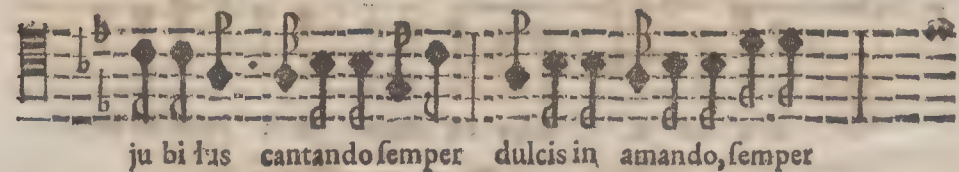 ju bi lus cantando ſemper dulcis in amando, ſemper